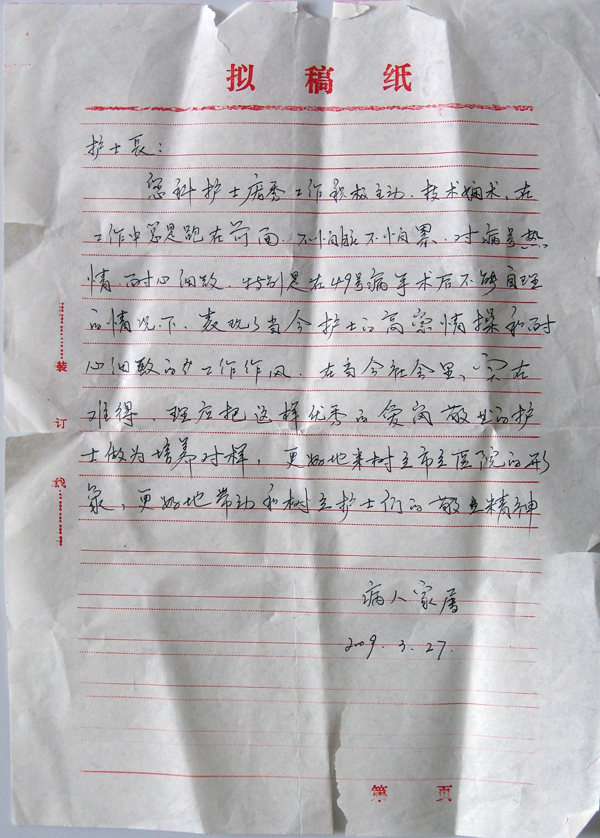 拟稿纸
护士长:
您科护士唐秀工作积极主动、技术娴术,在
工作中总是跑在前面、不怕脏不怕累、对病号热
情、耐心细致、特别是在49号病手术后不够自理
的情况下、表现了当今护士的高尚情操和耐
心细致的工作作风、在当今社会里,实在
难得、理应把这样优秀的爱岗敬业的护
士做为培养对样,更好地来树立市立医院的形
象,更好地带动和树立护士们的敬业精神
病人家属
2009.3.27.
装
订
线
第 页